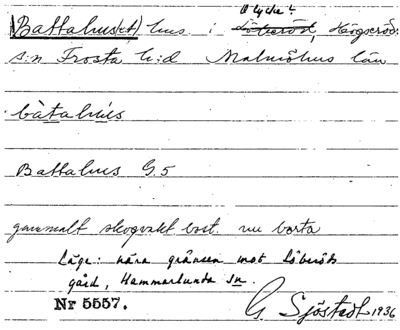 Olycke?
Battahus(et) hus i Löberöd, Högseröd.
s:n Frosta h:d Malmöhus län
bàtahùs
Battahus G.5
gammalt skogvakt bost. nu borta
Läge: nära gränsen mot Löberöds
gård, Hammarlunda sn.
Nr 5557.
G Sjöstedt 1936